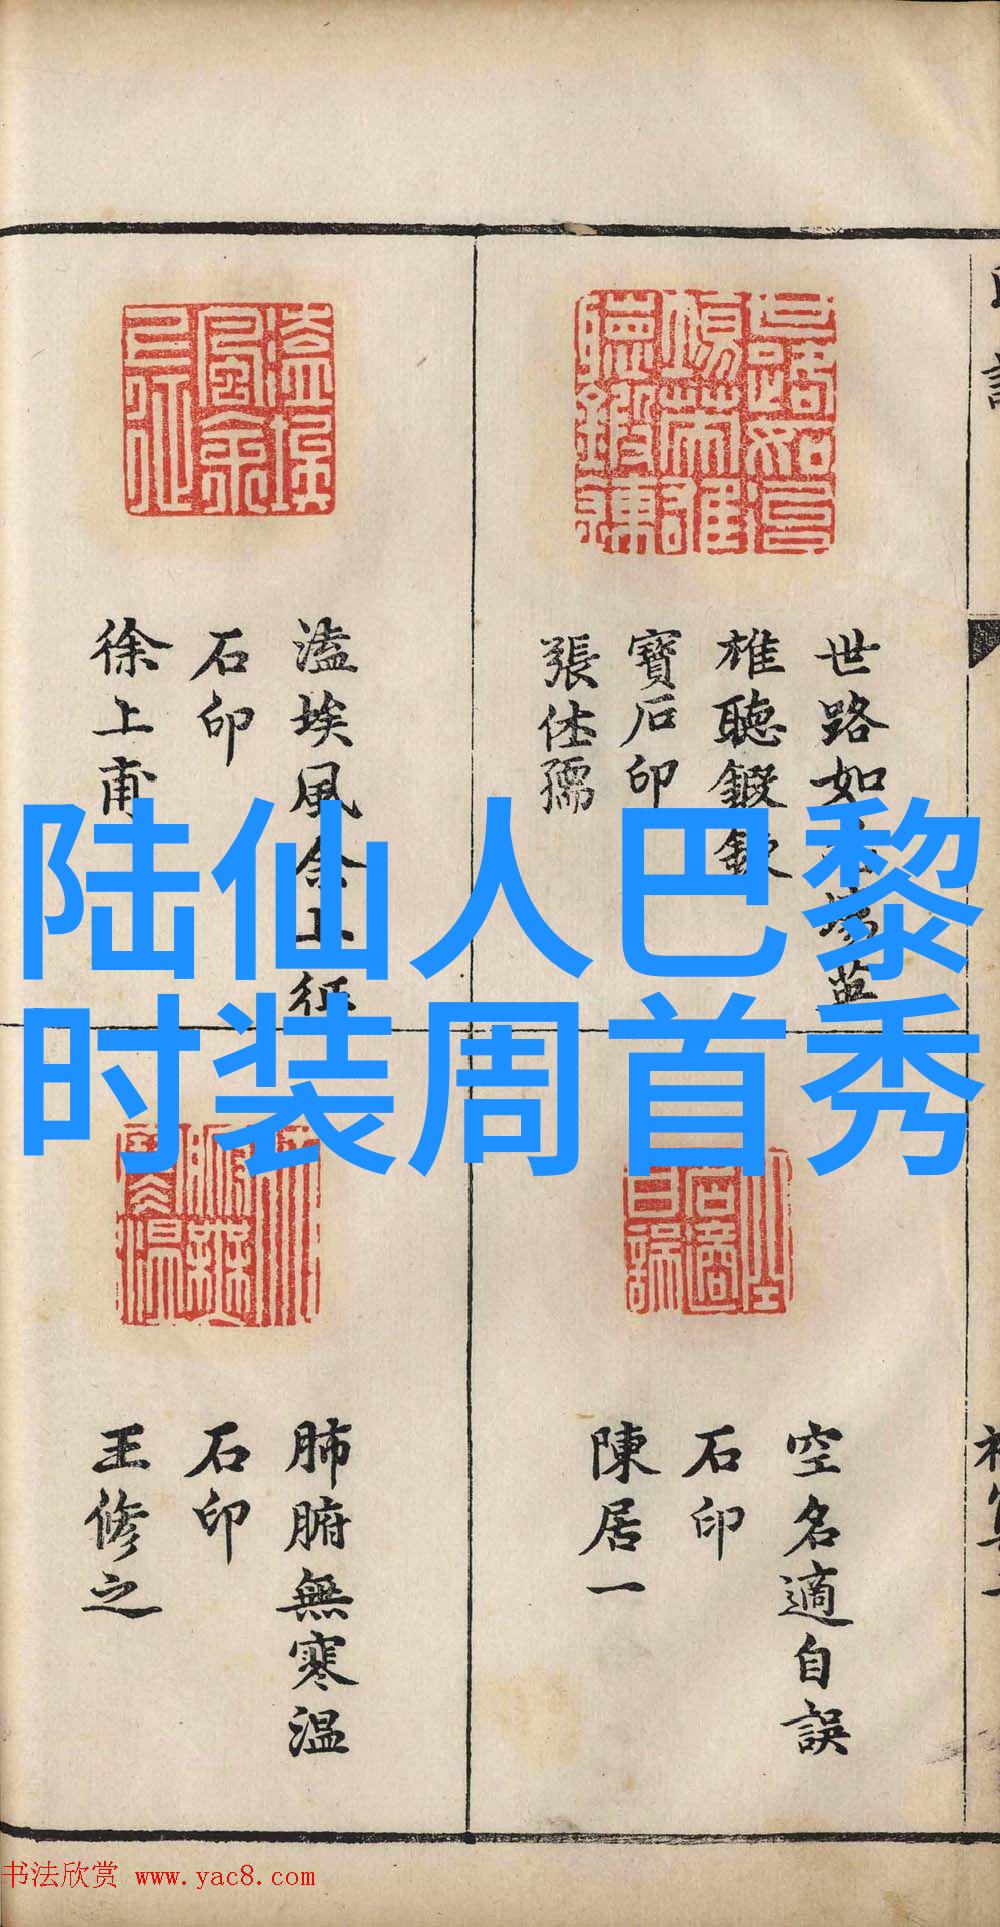 世路如
雄聽鍛鍊
寶石印
張仕孺
溘埃風余上征
石印
徐上甫
陆仙人巴黎
时装周首秀
空名適自誤
石印
陳居一
肺腑無寒温
石印
王修之
书法欣赏 www.yac8.com